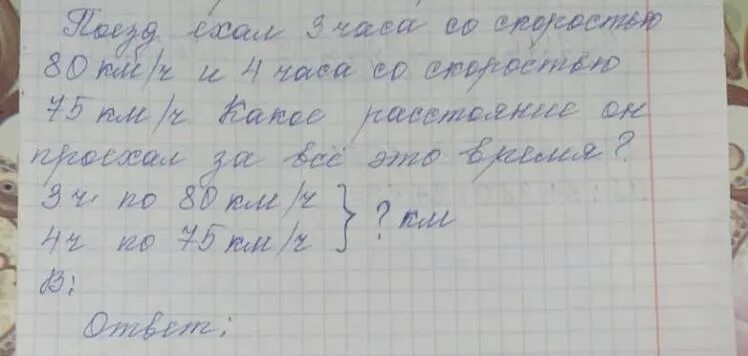 Поезд ехал 3 часа со скоростью
80 км/ч и 4 часа со скоростью
75 км/ч. Какое расстояние он
проехал за всё это время?
3 ч. по 80 км/ч } ? км
4 ч по 75 км/ч
В:
Ответ: